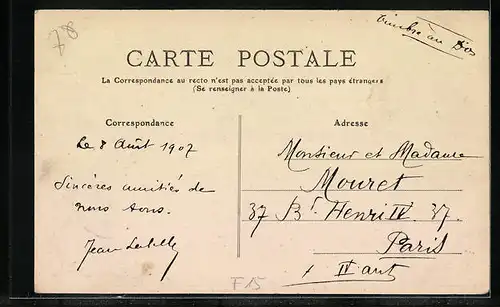 78
Timbre au Dos
CARTE POSTALE
La Correspondance au recto n'est pas acceptée par tous les pays étrangers
(Se renseigner à la Poste)
Correspondance
Le 8 Août 1907
Sincères amitiés de
nous tous.
Jean
Adresse
Monsieur et Madame
Mouret
37 Bd Henri IV 37.
Paris
IV arrt
F15